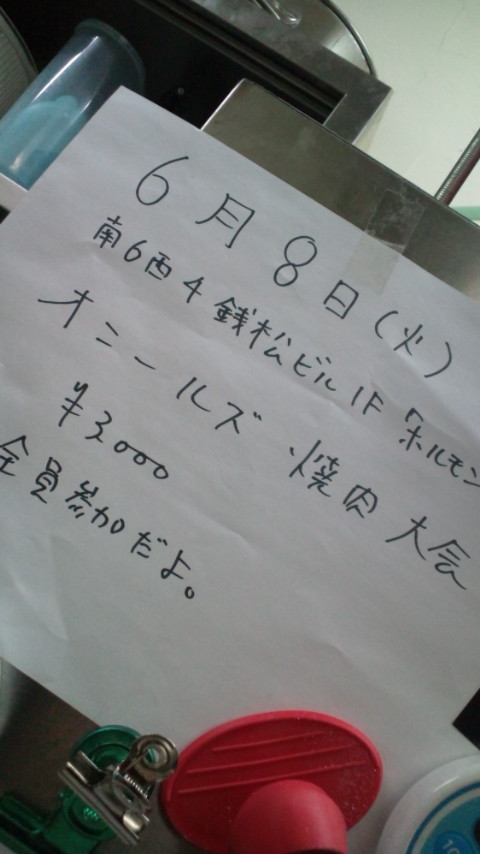 6月8日(火)
南6西4 銭松ビル1F ホルモン
オニールズ 焼肉大会
¥3000
全員参加だよ。